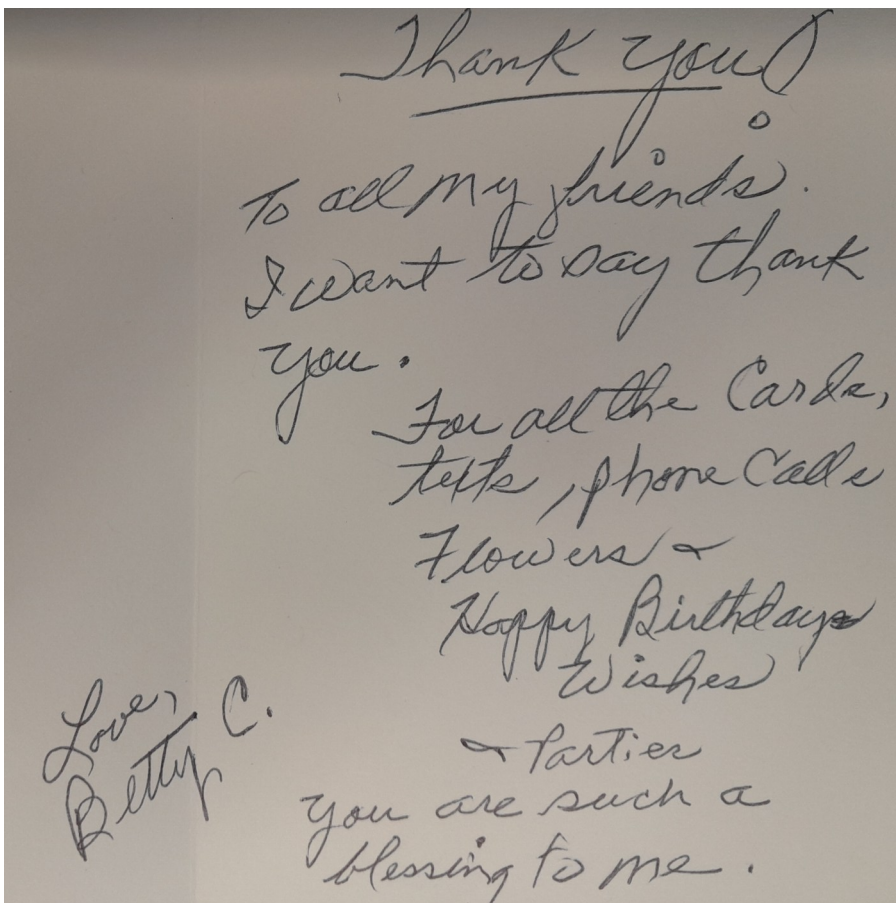 Thank you!
To all my friends.
I want to say thank
you.
For all the Cards,
texts, phone Calls
Flowers &
Happy Birthday
Wishes
& Parties
you are such a
blessing to me.
Love,
Betty C.